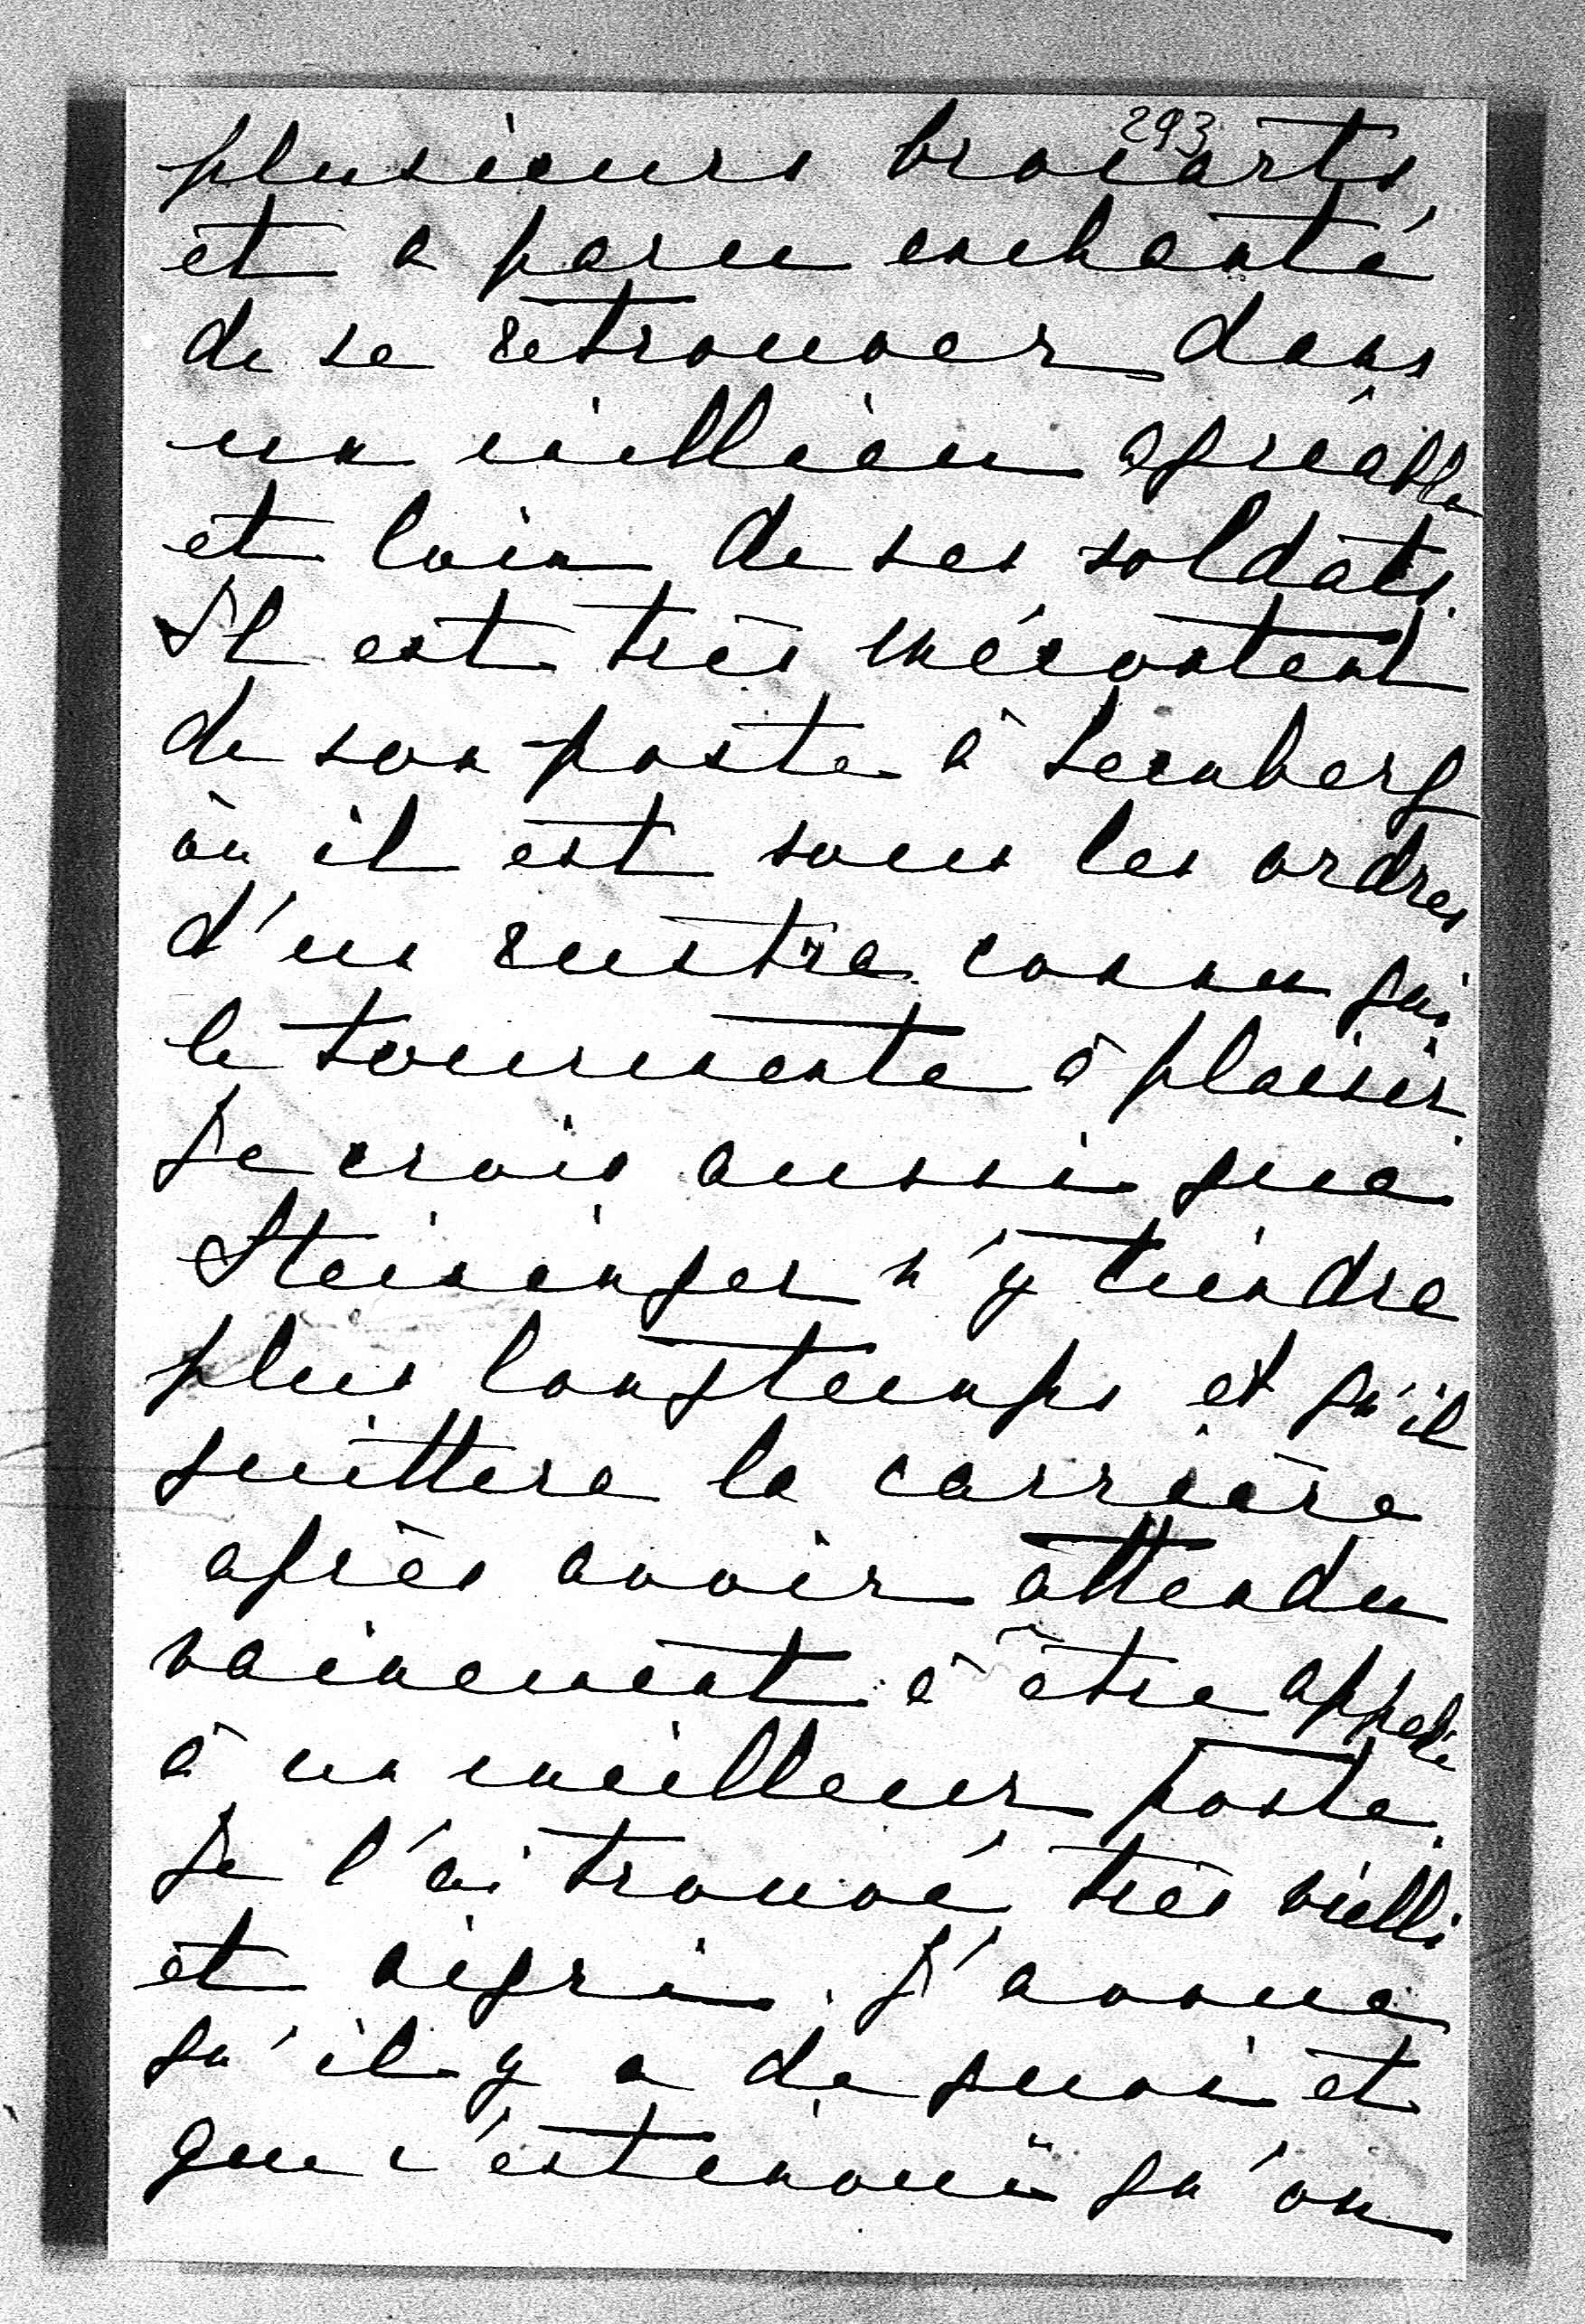 293
plusieurs brocarts
et a paru enchanté
de se retrouver dans
un millieu agréable
et loin de ses soldats.
Il est très mécontent
de son poste à Lemberg
où il est sous les ordres
d'un rustre connu qui
le tourmente à plaisir.
Je crois aussi que
Steininger n'y tiendra
plus longtemps et qu'il
quittera la carrière
après avoir attendu
vainement à être appelé
à un meilleur poste.
Je l'ai trouvé très vielli
et aigri. J'avoue
qu'il y a de quoi et
que c'est inouï qu'on